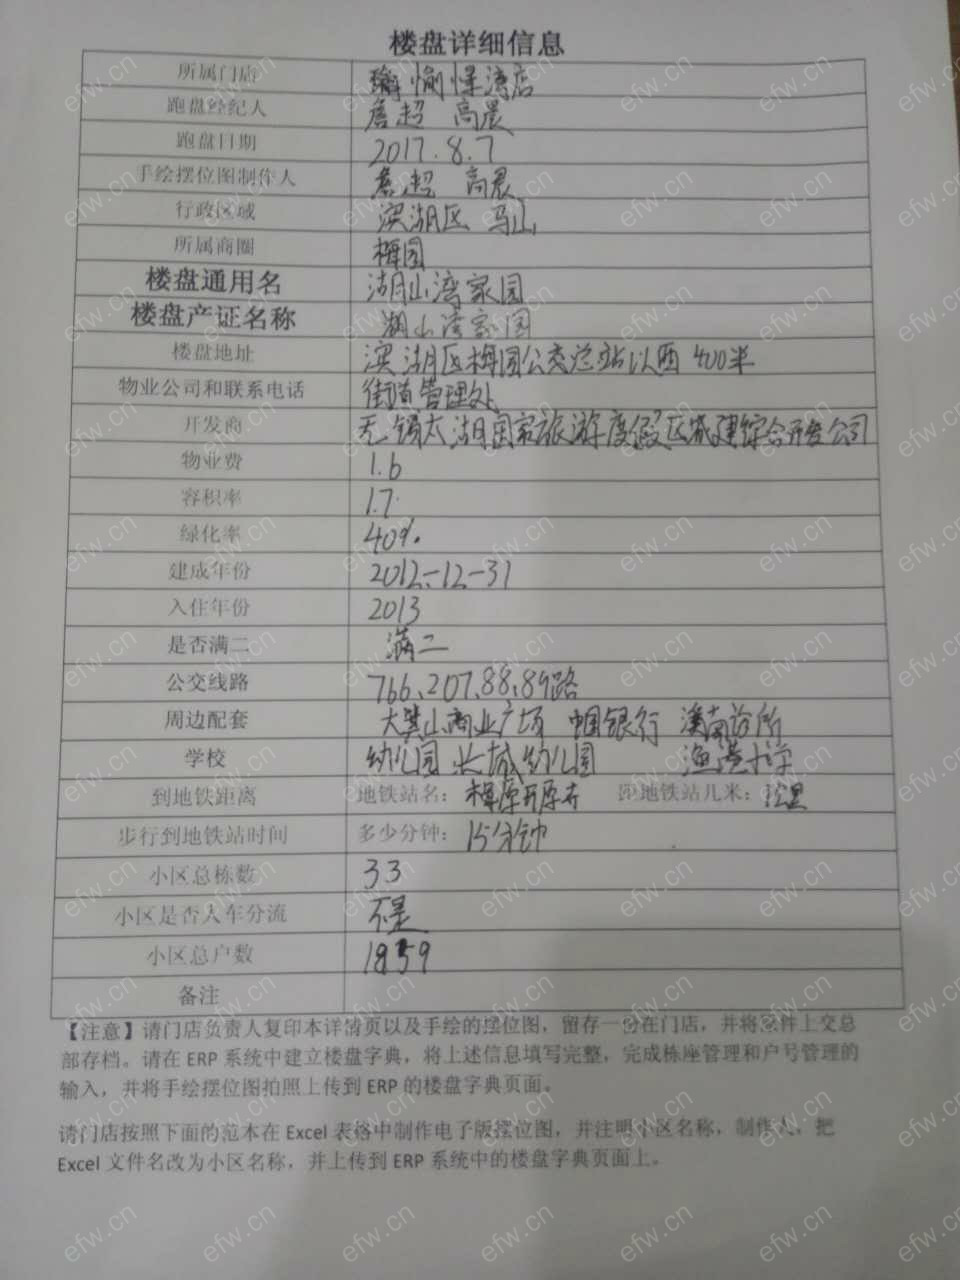 楼盘详细信息
所属门店 愉憬湾店
跑盘经纪人 詹超 高晨
跑盘日期 2017.8.7
手绘摆位图制作人 詹超 高晨
行政区域 滨湖区 马山
所属商圈 梅园
楼盘通用名 湖山湾家园
楼盘产证名称 湖山湾家园
楼盘地址 滨湖区梅园公交总站以西400米
物业公司和联系电话 街道管理处
开发商 无锡太湖国家旅游度假区城建综合开发公司
物业费 1.6
容积率 1.7
绿化率 40%
建成年份 2012-12-31
入住年份 2013
是否满二 满二
公交线路 766、207、88、89路
周边配套 大箕山商业广场 中国银行 溪南诊所
学校 幼儿园 幼儿园 渔港小学
到地铁距离 地铁站名: 距地铁站几米:
步行到地铁站时间 多少分钟: 15分钟
小区总栋数 33
小区是否人车分流 不是
小区总户数 1859
备注
【注意】请门店负责人复印本详情页以及手绘的摆位图，留存一份在门店，并将原件上交总
部存档。请在 ERP 系统中建立楼盘字典，将上述信息填写完整，完成栋座管理和户号管理的
输入，并将手绘摆位图拍照上传到 ERP 的楼盘字典页面。
请门店按照下面的范本在 Excel 表格中制作电子版摆位图，并注明小区名称，制作人，把
Excel 文件名改为小区名称，并上传到 ERP 系统中的楼盘字典页面上。
efw.cn